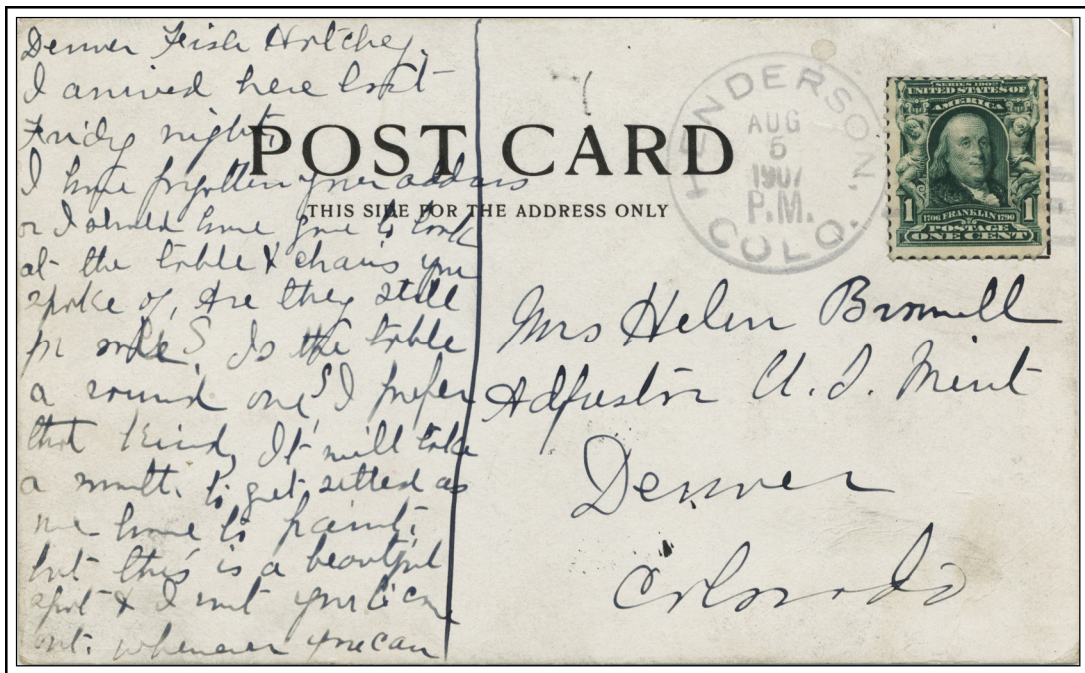 Denver Fish Hatchey.
I arrived here last
Friday night,
I have forgotten your address
or I should have gone to look
at the table & chairs you
spoke of, Are they still
for sale? Is the table
a round one? I prefer
that kind, It will take
a month to get settled as
we have to paint,
but this is a beautiful
spot & I want you to come
out whenever you can
POST CARD
THIS SIDE FOR THE ADDRESS ONLY
HENDERSON, COLO.
AUG
6
1907
P.M.
SERIES 1902
UNITED STATES OF
AMERICA
1 1706 FRANKLIN 1790 1
POSTAGE
ONE CENT
Mrs Helen Bromwell
Adjustor U. S. Mint
Denver
Colorado